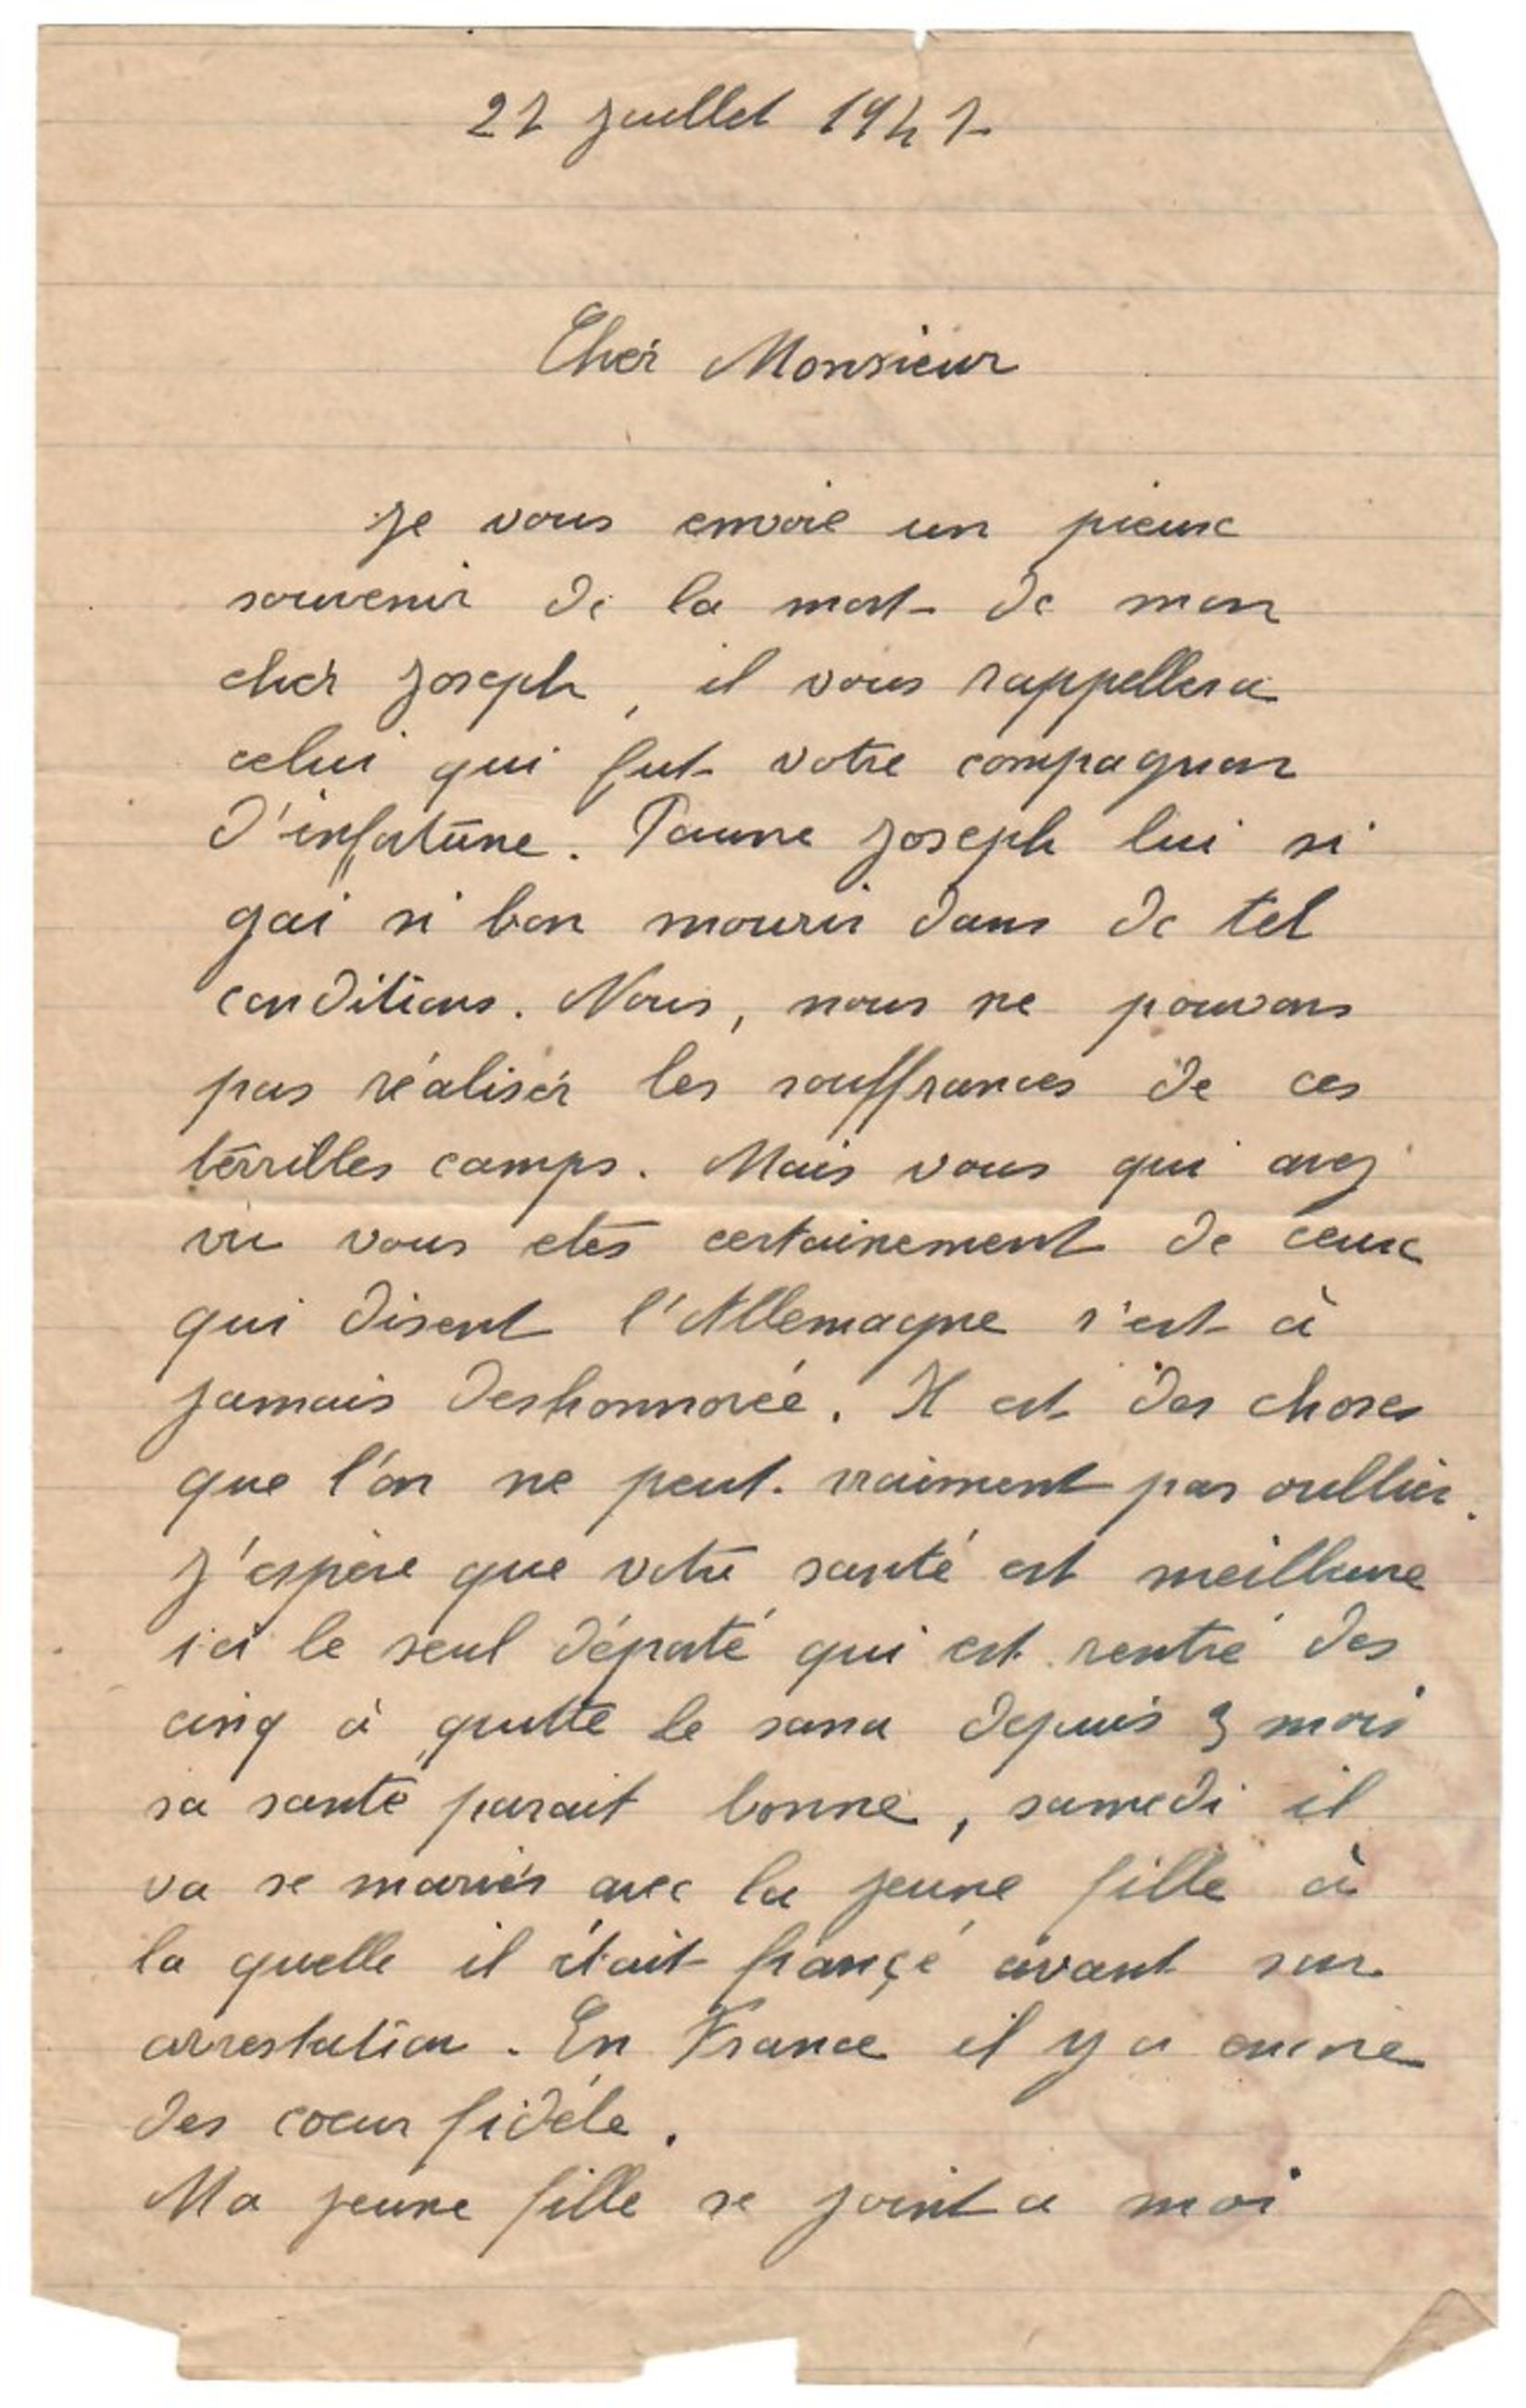 27 juillet 1947
Cher Monsieur
Je vous envoie un pieux
souvenir de la mort de mon
cher Joseph, il vous rappellera
celui qui fut votre compagnon
d'infortune. Pauvre Joseph lui si
gai si bon mourir dans de tel
conditions. Nous, nous ne pouvons
pas réaliser les souffrances de ces
terribles camps. Mais vous qui avez
vu vous etes certainement de ceux
qui disent l'Allemagne s'est à
jamais deshonnorée. Il est des choses
que l'on ne peut vraiment pas oublier.
J'espère que votre santé est meilleure
ici le seul déporté qui est rentré des
cinq à quitté le sana depuis 3 mois
sa santé parait bonne, samedi il
va se marier avec la jeune fille à
la quelle il était françé avant son
arrestation. En France il y a encore
des coeur fidèle.
Ma jeune fille se joint a moi